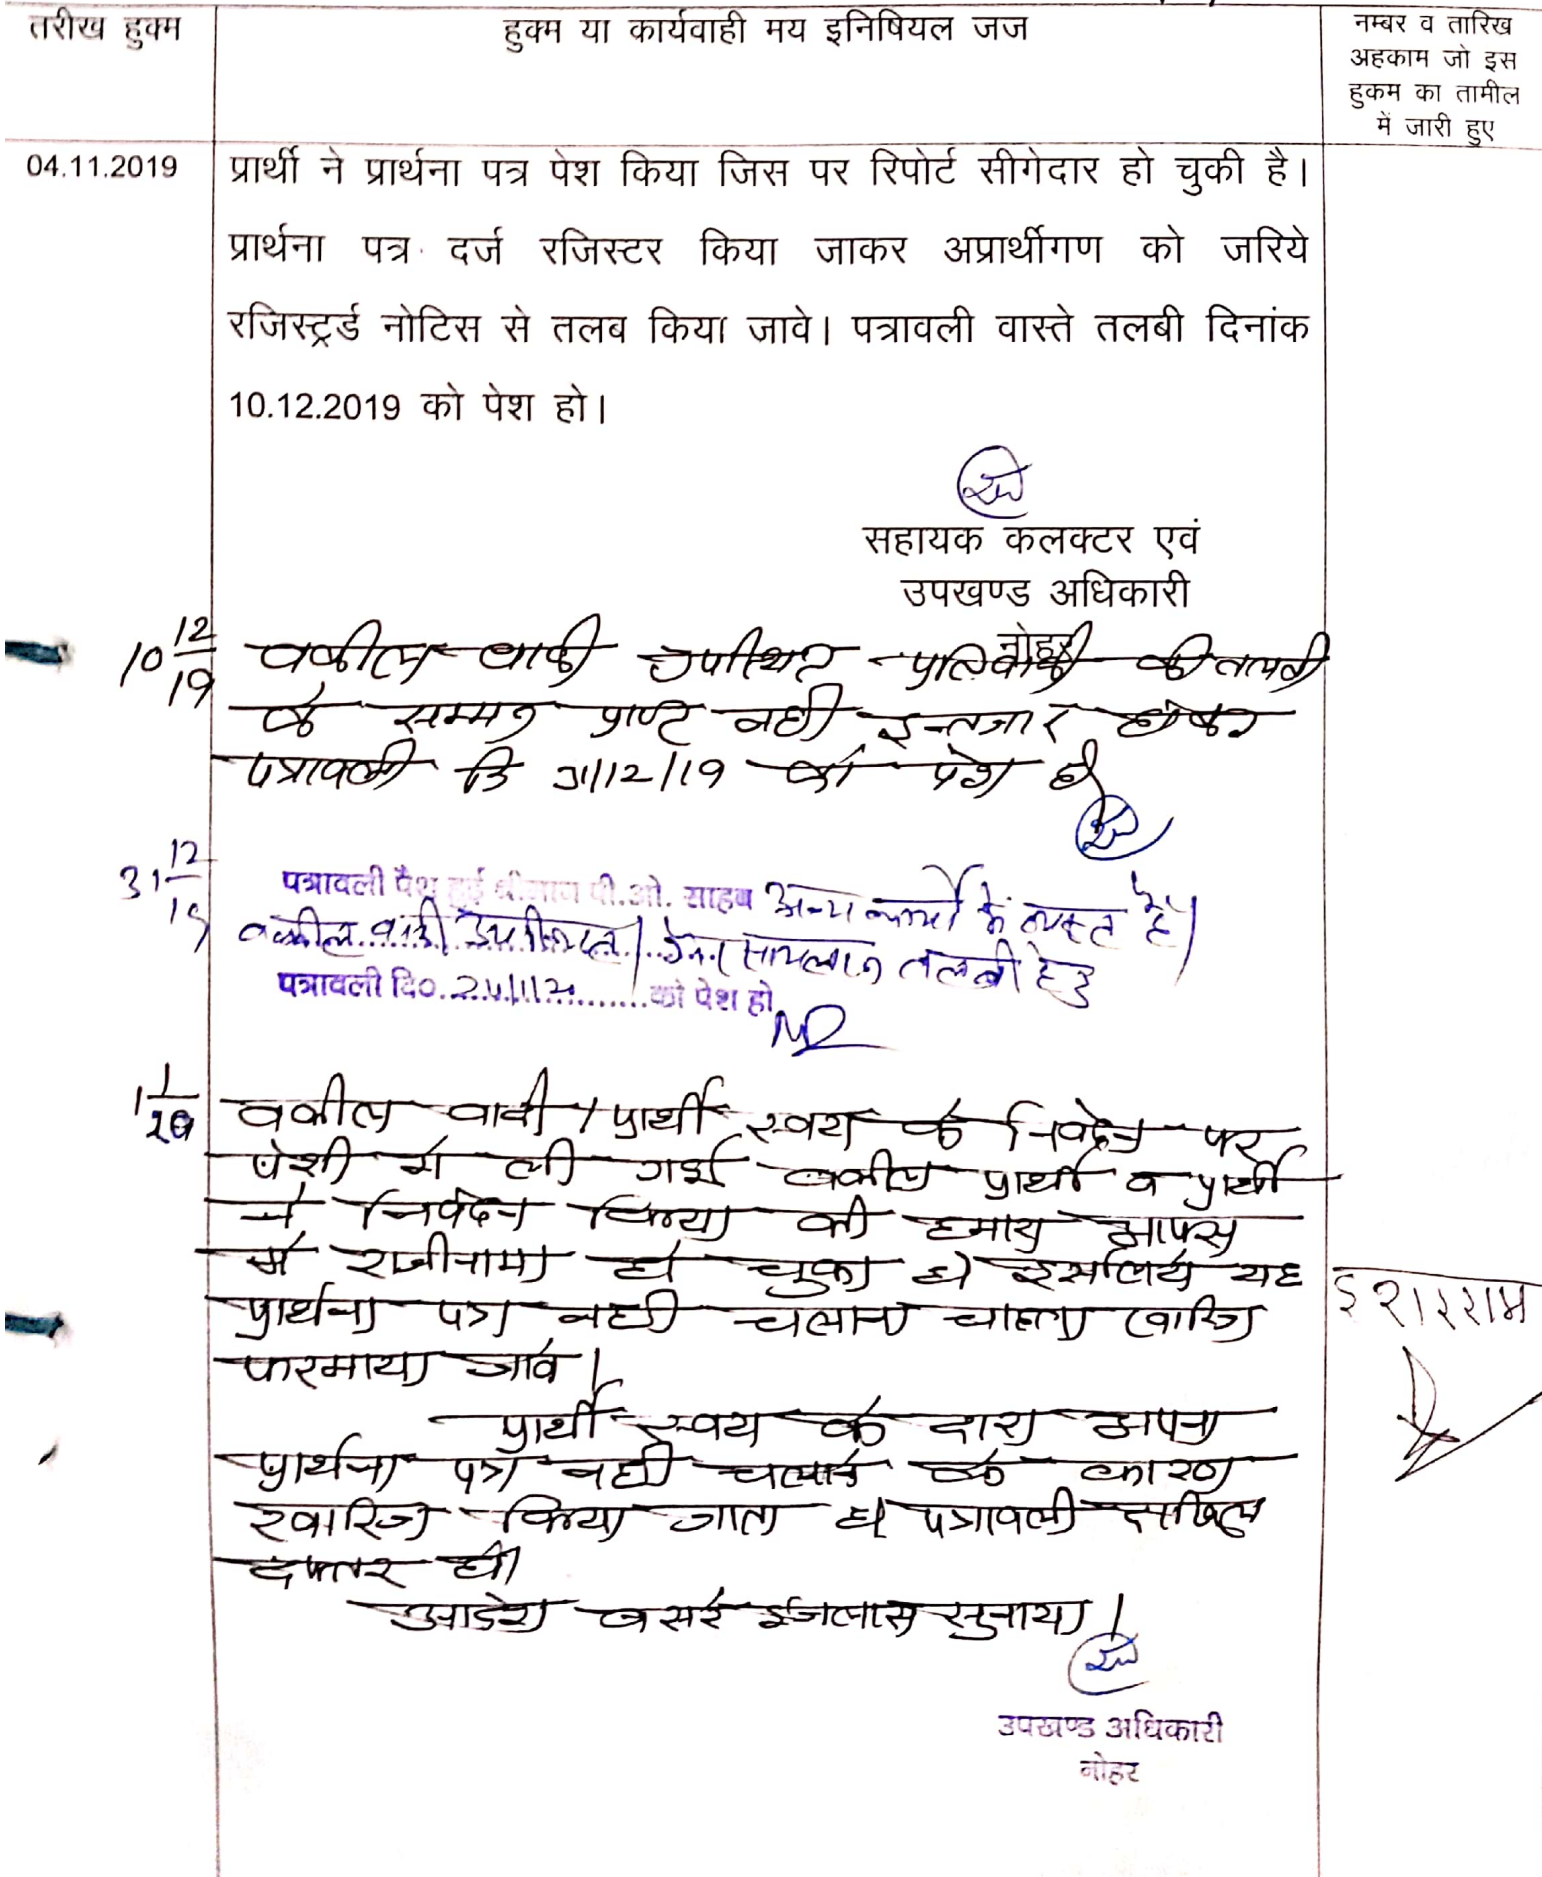 तरीख हुक्म
हुक्म या कार्यवाही मय इनिषियल जज
नम्बर व तारिख
अहकाम जो इस
हुकम का तामील
में जारी हुए
04.11.2019
प्रार्थी ने प्रार्थना पत्र पेश किया जिस पर रिपोर्ट सीगेदार हो चुकी है।
प्रार्थना पत्र दर्ज रजिस्टर किया जाकर अप्रार्थीगण को जरिये
रजिस्ट्रर्ड नोटिस से तलब किया जावे। पत्रावली वास्ते तलबी दिनांक
10.12.2019 को पेश हो।
सहायक कलक्टर एवं
उपखण्ड अधिकारी
नोहर
10 12/19
वकील वादी उपस्थित प्रतिवादी की तलबी
के सम्मन प्राप्त नही इन्तजार होकर
पत्रावली दि 31/12/19 को पेश हो
31 12/19
पत्रावली पैश हुई श्रीमान पी.ओ. साहब अन्य कार्यो में व्यस्त है।
वकील वादी उपस्थित। तलबी हेतु
पत्रावली दि०. को पेश हो
1 1/20
वकील वादी / प्रार्थी स्वयं के निवेदन पर
पेशी में ली गई वकील प्रार्थी व प्रार्थी
ने निवेदन किया की हमारा आपस
में राजीनामा हो चुका है इसलिये यह
प्रार्थना पत्र नही चलाना चाहता खारिज
फरमाया जावे।
प्रार्थी स्वयं के द्वारा अपना
प्रार्थना पत्र नही चलाने के कारण
खारिज किया जाता है पत्रावली दाखिल
दफ्तर हो
आदेश बसरे ईजलास सुनाया।
उपखण्ड अधिकारी
नोहर